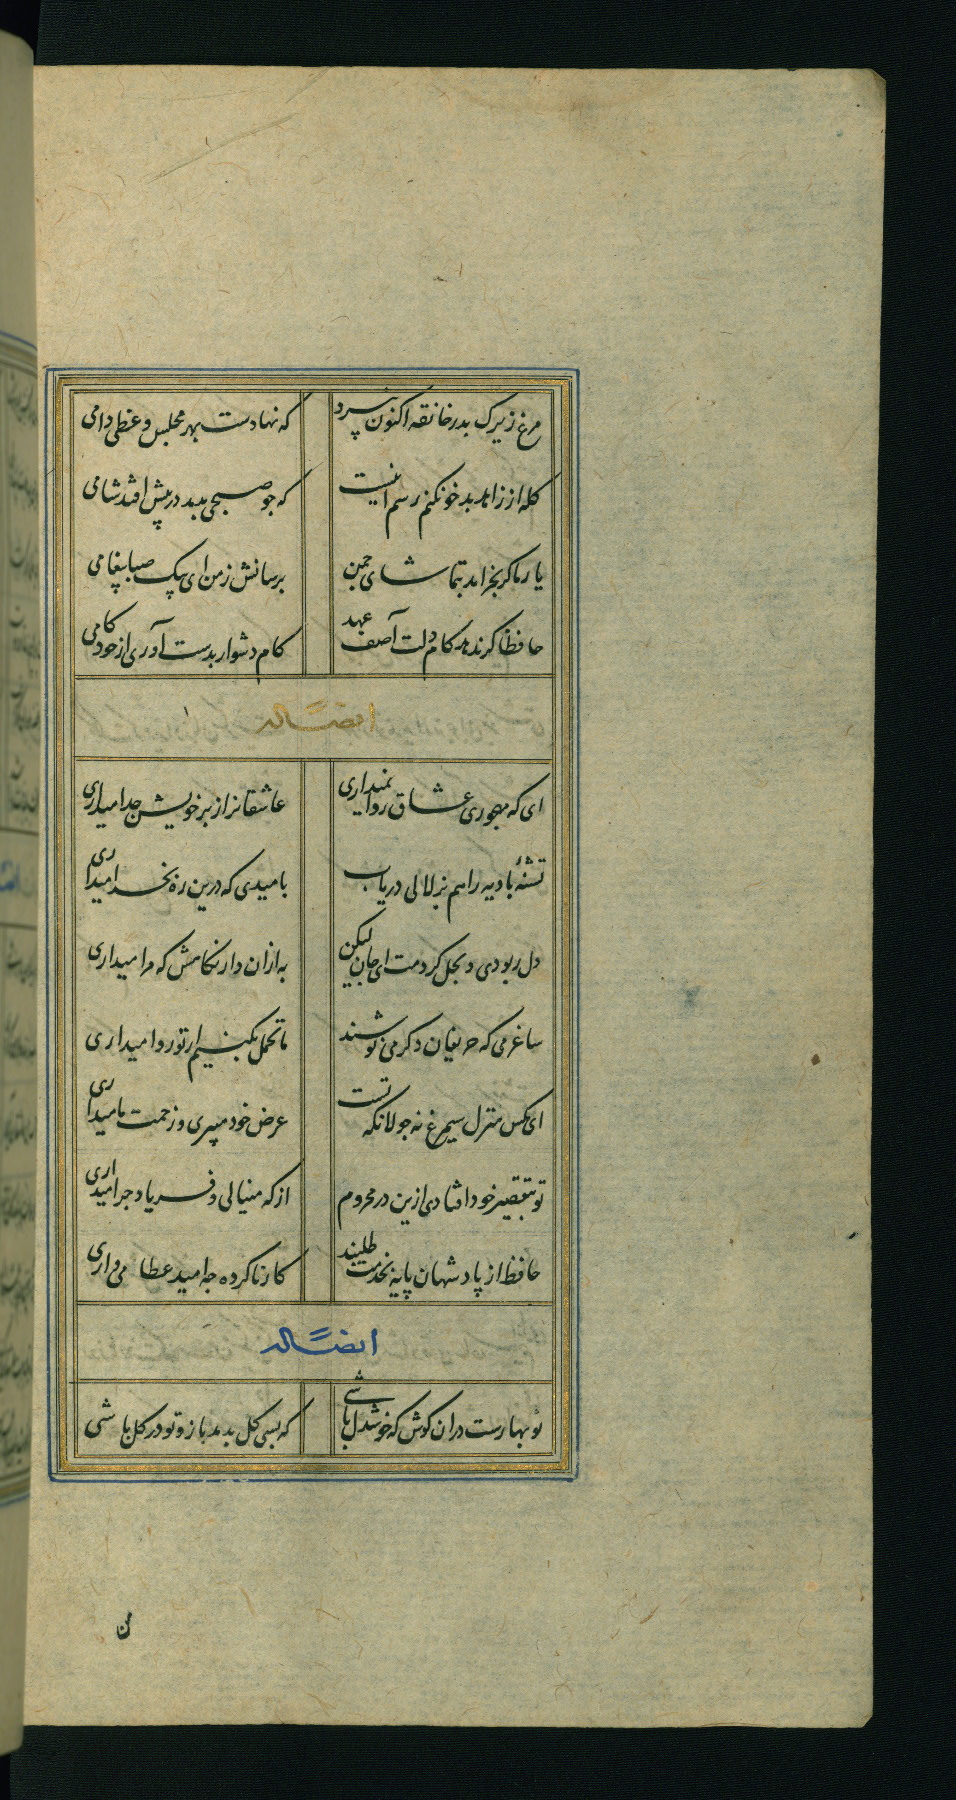 مرغ زیرک بدر خانقه اکنون نپرد که نهادست بهر مجلس وعظی دامی
کله از زاهد بدخو نکنم رسم اینست که جو صبحی بدمد در پیش افتد شامی
یار ما کر بخرامد بتماشای جمن برسانش ز من ای پیک صبا پیغامی
حافظا کر ندهد کام دلت آصف عهد کام دشوار بدست آوری از خودکامی
ایضا له
ای که مهجوری عشاق روا نمیداری عاشقانرا ز بر خویش جدا میداری
تشنه بادیه را هم بزلالی دریاب بامیدی که درین ره بخدا میداری
دل ربودی و بحل کردمت ای جان لیکن به ازان دار نکاهش که مرا میداری
ساغر می که حریفان دکر می نوشند ما تحمل بکنیم ار تو روا میداری
ای مکس منزل سیمرغ نه جولانکه تست عرض خود میبری و زحمت ما میداری
تو بتقصیر خود افتادی ازین در محروم از که مینالی و فریاد جرا میداری
حافظ از پادشهان پایه بخدمت طلبند کار ناکرده جه امید عطا می داری
ایضا له
نو بهارست دران کوش که خوشدل باشی که بسی کل بدمد باز و تو در کل باشی
من